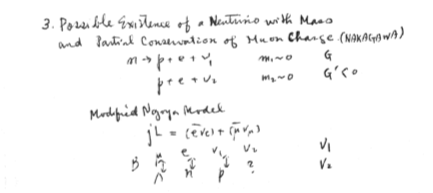 3. Possible Existence of a Neutrino with Mass
and Partial Conservation of Muon Charge (NAKAGAWA)
n → p + e + ν₁ m₁~0 G
p + e + ν₂ m₂~0 G'<0
Modified Nagoya Model
jL = (ēνe) + (μ̄νμ)
B μ e ν₁ ν₂ ν₁
Λ n p ? ν₂